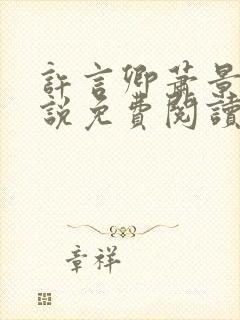 許言卿蕭景
說免費閱讀
章祥